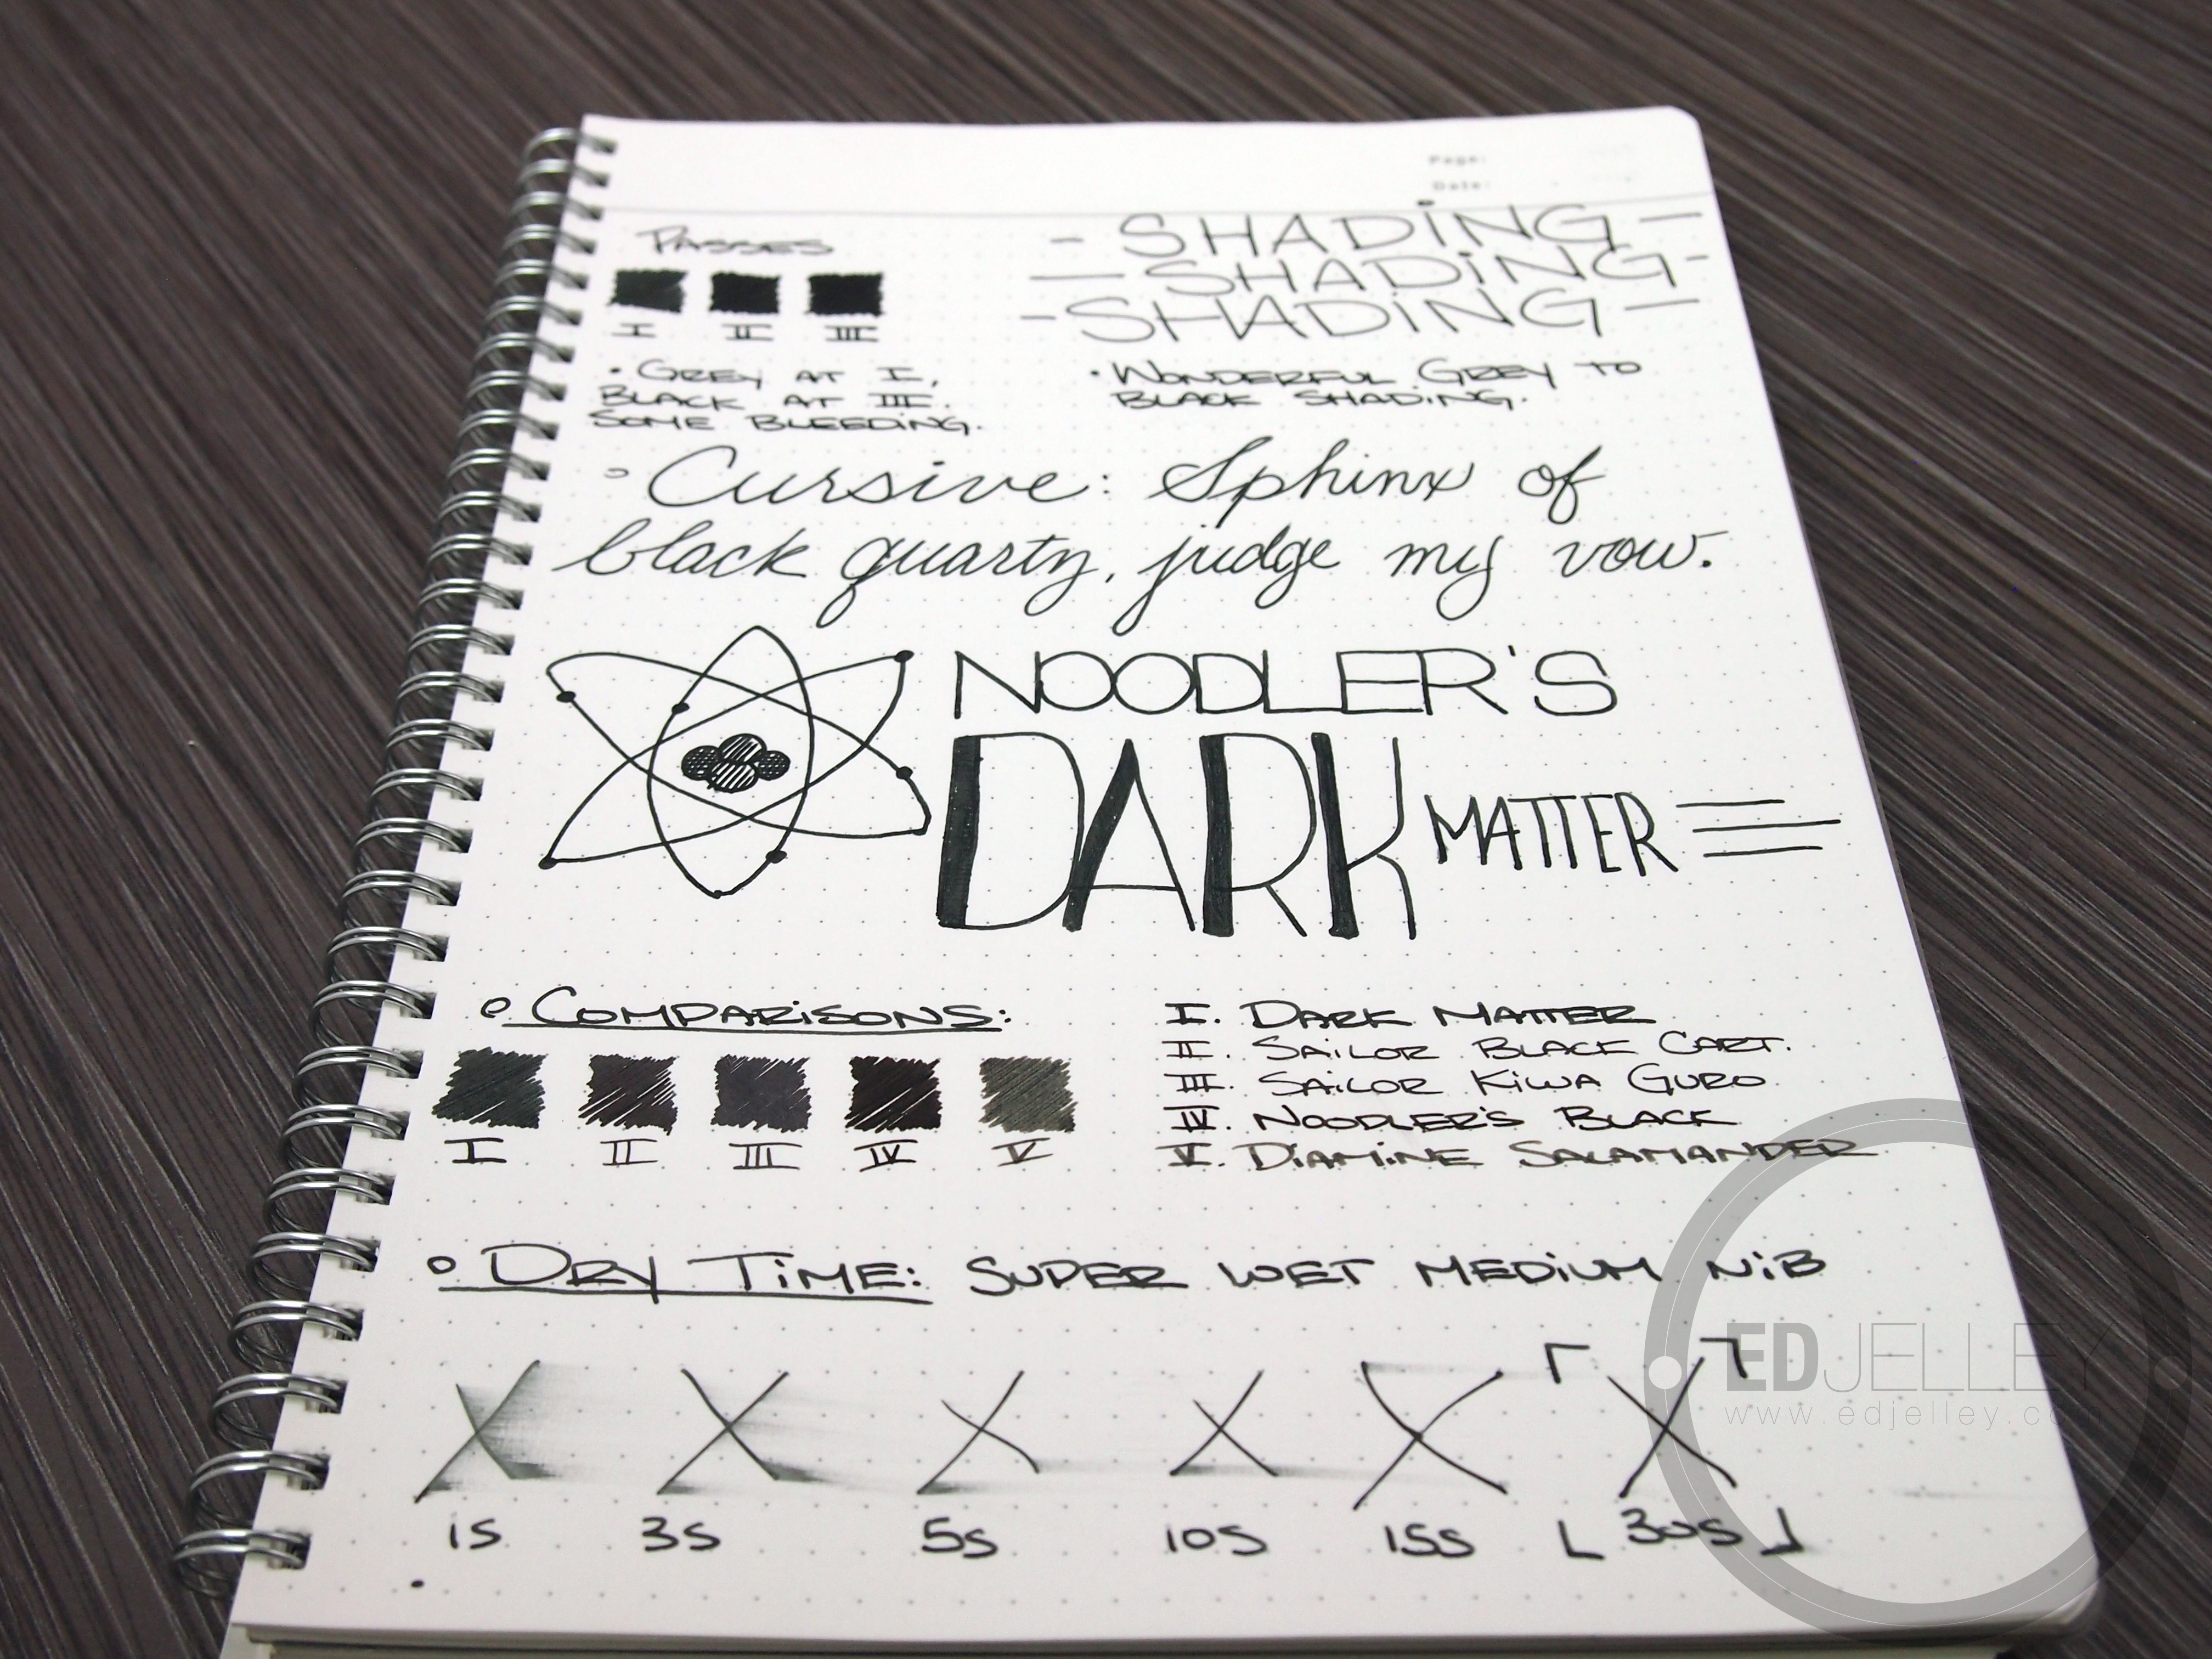 Page:
Date:
PASSES
I II III
• GREY AT I,
BLACK AT III.
SOME BLEEDING.
- SHADING -
- SHADING -
- SHADING -
• WONDERFUL GREY TO
BLACK SHADING.
° Cursive: Sphinx of
black quartz, judge my vow.
NOODLER'S
DARK MATTER
° COMPARISONS:
I II III IV V
I. DARK MATTER
II. SAILOR BLACK CART.
III. SAILOR KIWA GURO
IV. NOODLER'S BLACK
V. DIAMINE SALAMANDER
° DRY TIME: SUPER WET MEDIUM NIB
X X X X X X
1S 3S 5S 10S 15S 30S
EDJELLEY
www.edjelley.com